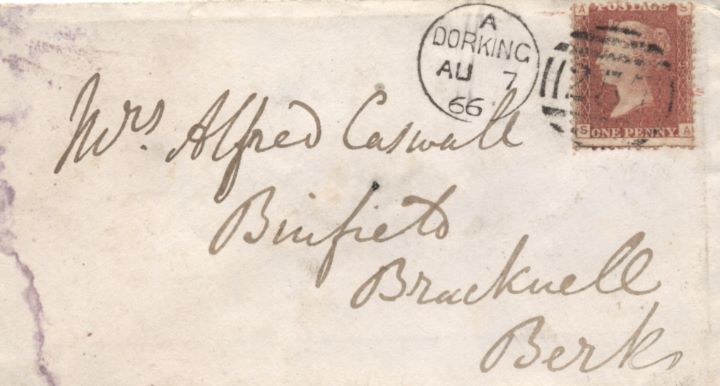 A
DORKING
AU 7
66
A S
POSTAGE
ONE PENNY
S A
Mrs. Alfred Caswall
Binfield
Bracknell
Berks